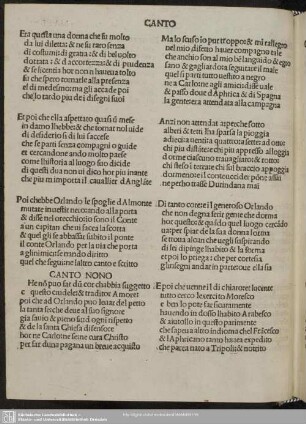 CANTO
Era questa una donna che fu molto
da lui diletta: & ne fu raro senza
di costumi di gratia: & di bel volto
dottata: & d accortezza: & di prudenza
si che spero tornalle alla presenza
el di medesmo gli accade poi
che lo tardo piu de i disegni suoi
Et poi che ella aspettato quasi il mese
in damo lhebbe: & che tornar nol uide
di desiderio si di lui saccese
che se parti senza compagni o guide
et cercandone ando molto paese
come lhistoria al luogo suo dicide
di questi dua non ui dico hor piu inante
che piu m importa il cauallier d Anglãte
Poi chebbe Orlando le spoglie d Almonte
mutate in uesta nera: ando alla porta
& disse nel orecchio: io sono il Conte
a un capitan che in fea la scorta
& quel gli fe abbassar subito il ponte
il conte Orlando per la uia che porta
a glinimici se andò diritto
quel che segui nel altro canto e scritto
CANTO NONO
Che nõ può far dũ cor chabbia suggetto
questo crudele & traditore Amore
poi che ad Orlando può leuar del petto
la tanta fe che deue al suo signore
gia sauio & pieno fu d ogni rispetto
& de la santa Chiesa difensore
hor ne Carlo ne se ne cura Christo
Ma lo scuso io pur: & m rallegro
nel mio difetto hauer compagno tale
che anchio son al mio bẽ languido & egro
sano & gagliardo a seguitare il male
quel si parti tutto uestito a negro
ne a Carlo ne agli amici disse uale
& passò doue d Aphrica & di Spagna
la gente era attendata alla campagna
Anzi non attendata: perche sotto
alberi & tetti lha sparsa la pioggia
a dieci a uenti a quattro a sette ad otto
chi piu distante chi piu appresso alloggia
dorme ciascuno trauagliato & rotto
chi steso ĩ terra: chi si fa bracci appoggia
ne perho trasse Durindana mai
Di tanto core e il generoso Orlando
che non degna ferir gente che dorma
hor questo & quando quel luogo cercãdo
ua per spiar de la sua donna lorma
se troua alcun che uegli sospirando
li dipinge lhabito & la forma
et poi lo priega: che per cortesia
glinsegni andar in parte oue ella sia
Et poi che uenne il di chiaro: et lucente
tutto cercò lexercito Moresco
e ben lo pote far sicuramente
hauendo in dosso lhabito Arabesco
& aiutollo in questo parimente
che sapeua altro idioma che Francesco
& l Aphricano tanto hauea expedito
che parea nato a Tripoli: & notrito